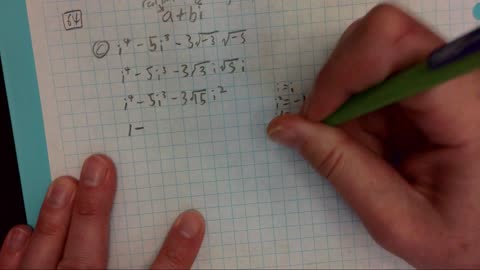 64
a+bi
c) i⁴ - 5i³ - 3√-3 √-5
i⁴ - 5i³ - 3√3 i √5 i
i⁴ - 5i³ - 3√15 i²
1 -
i = i
i² = -1